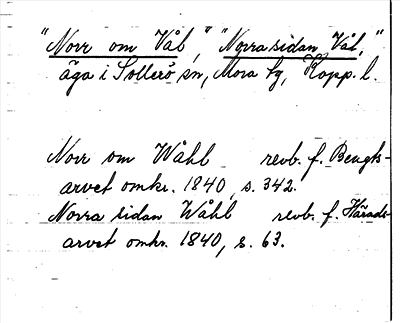 "Norr om Vål," "Norra sidan Vål,"
äga i Sollerö sn, Mora tg, Kopp. l.
Norr om Wåhl revb. f. Bengts-
arvet omkr. 1840, s. 342.
Norra sidan Wåhl revb. f. Härads-
arvet omkr. 1840, s. 63.